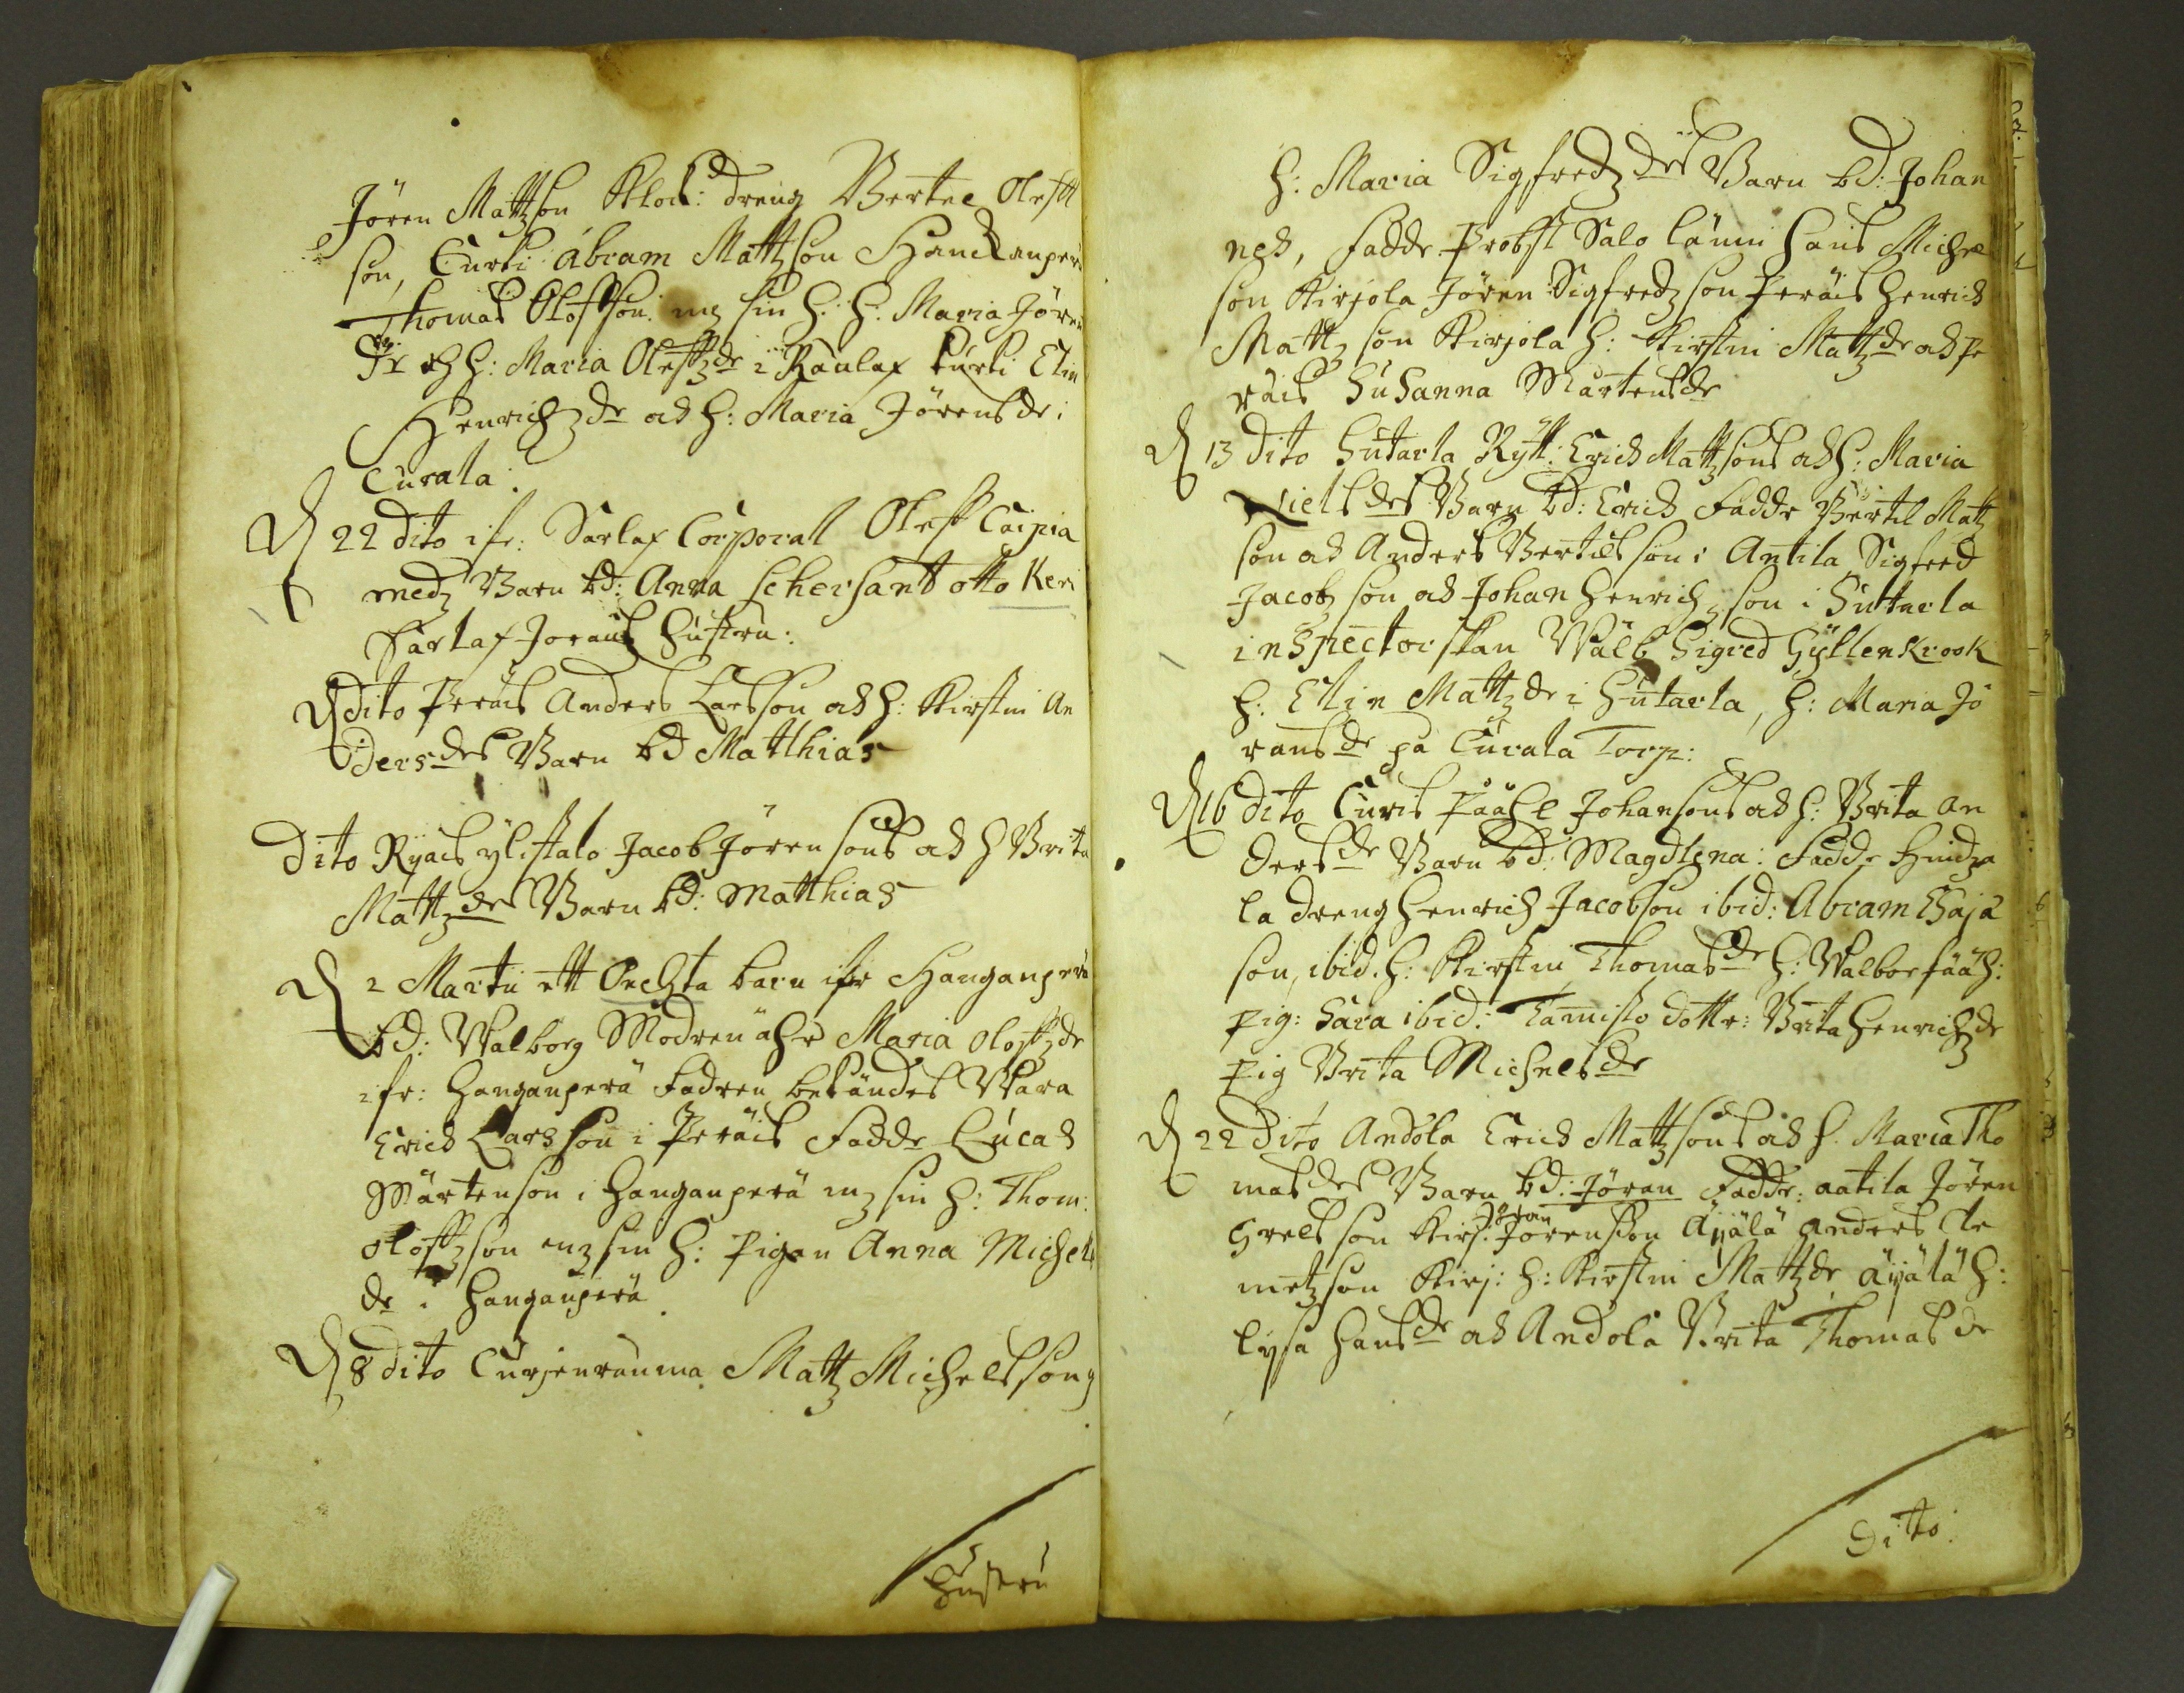 Jören Mattzson Klock: dreng Bertel Oleff
son, Curki Abram Mattzson Hanckanperä
Thomas Oloffson mz sin h: h: Maria Jören
dr h: Maria Oleffzdr i Raulax Curki Elin
Henrichzdr och h: Maria Jörensdr i
Curala:
D 22 dito ifr: Sarlax Corporall Oleff Caipia
medz Barn bd: Anna schersant otto Keri
Sarlax Jorans hustru:
D dito Peräis Anders Larsson och h: Kirstin An
dersdrs Barn bd Matthias
Dito Ryäis ylistalo Jacob Jörensons och h Brita
Mattzdrs Barn bd: Matthias
D 2 Martii ett Oechta barn ifr Hanganperä
bd: Walborg Modren ähr Maria Oloffzdr
ifr: hanganperä fadren bekändes Wara
Erich Larsson i Peräis Fadde Lucas
Märtenson i hanganperä mz sin h: Thom:
Oloffzson mz sin h: Pigan Anna Michels
dr i hanganperä
D 8 dito Curjenrauma Mattz Michelsons
hustru
h: Maria Sigfredzdrs Barn bd: Johan
nes, Fadde Probst Salo länni hans Michel
son Kirjola Jören Sigfredzson Peräis Henrich
Mattzson Kirjola h: Kirstin Mattzdr och Pe
räis Susanna Märtensdr
D 13 dito Hutarla Rytt: Erich Mattzsons och h: Maria
Nielsdrs Barn bd: Erich Fadde Bertil Mattz
son och Anders Bertilsson i Antila Sigfred
Jacobzson och Johan Henrichzson i Hutarla
inspectorskan Wälb Sigred Gyllenkrook
h: Elin Mattzdr i Hutarla, h: Maria Jö
ransdr på Curala Torp:
D 16 dito Curis Påähl Johansons och h: Brita An
dersdr Barn bd: Magdlena: Fadde
la dreng Henrich Jacobson ibid: Abram Esaja
son, ibid. h: Kirstin Thomasdr h: Walbor
pig: Sara ibid: Tamisto dottr: Brita Henrichzdr
pig Brita Michelsdr
D 22 Dito Andola Erich Mattzsons och h. Maria Tho
masdrs Barn bd: Jöran Fadde: aatila Jören
Grelsson Kirj: Jöran Jörensson Äijälä Anders Cle
metzson Kirj: h: Kirstin Mattzdr äijälä h:
Lysa Hansdr och Andola Brita Thomasdr
Ditto